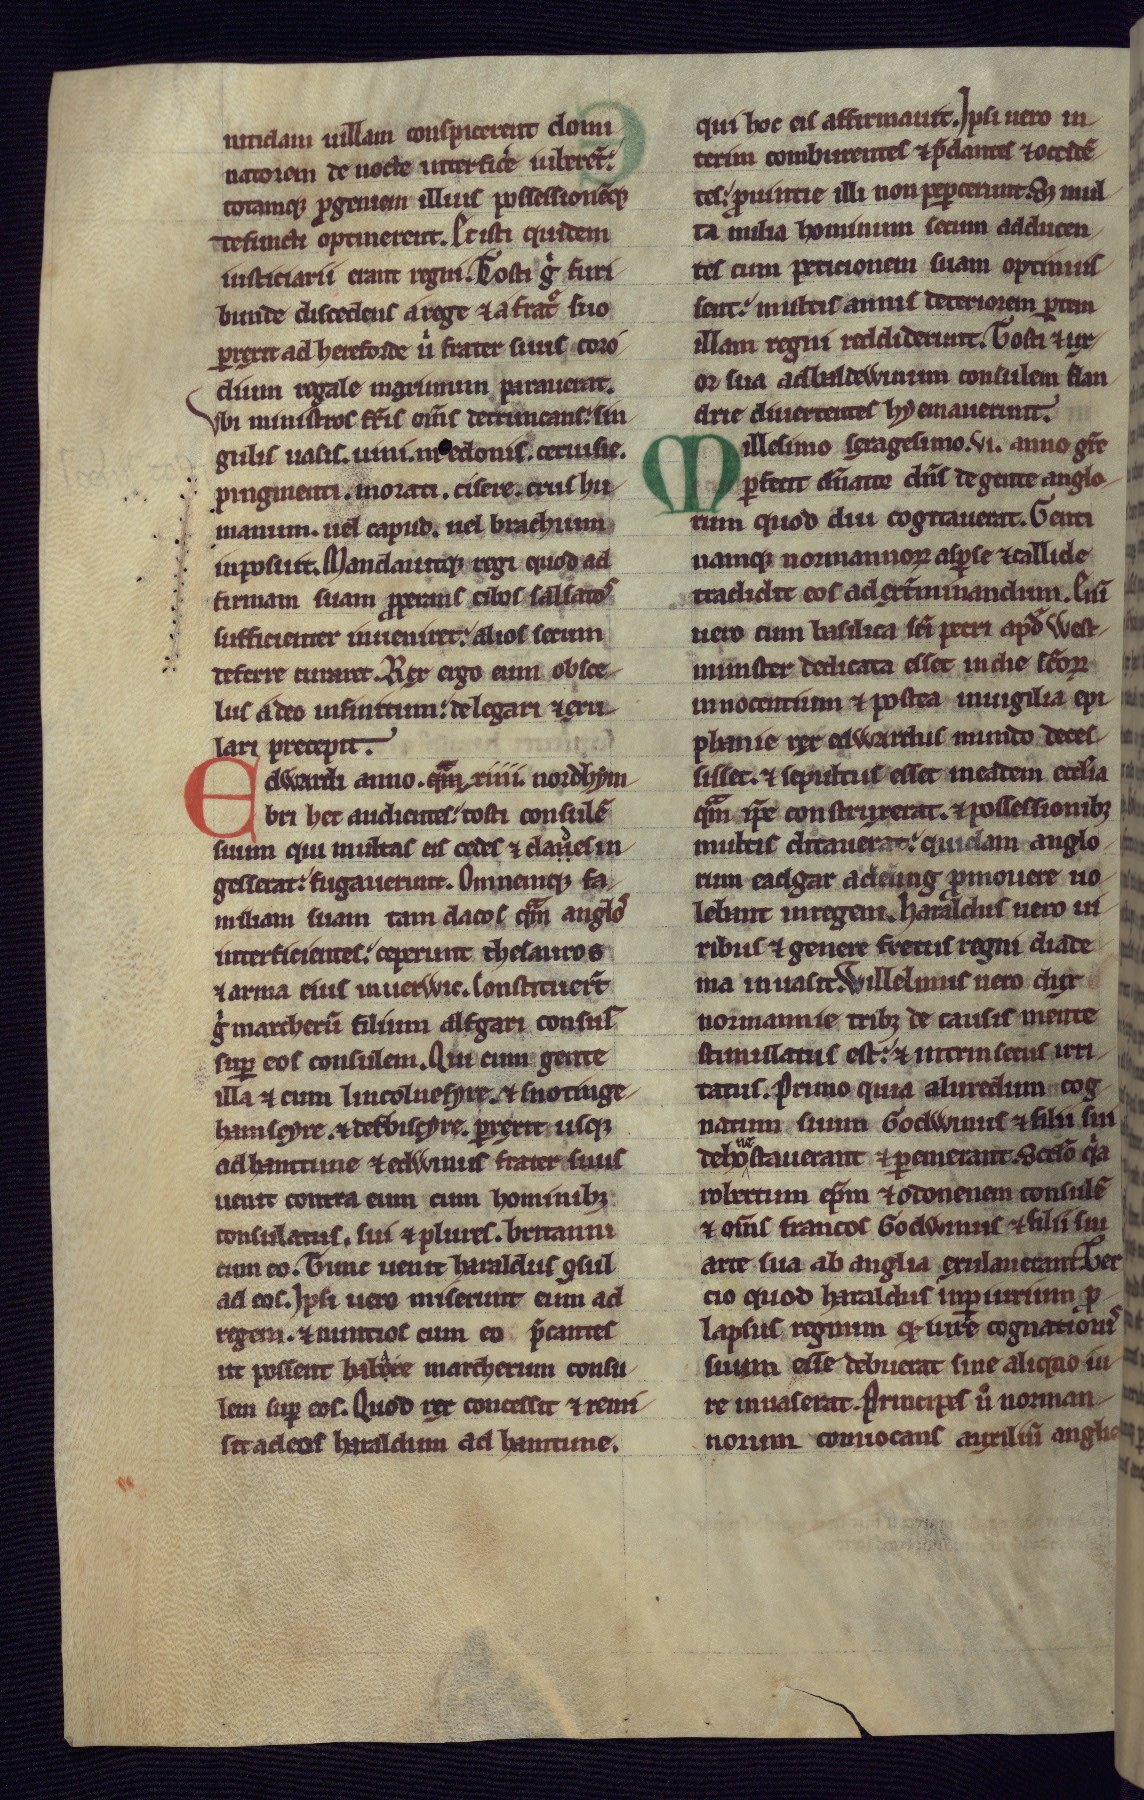 nitidam uillam conspicerent domi
natorem de nocte interfic̄e iuberēt:
totamq; p̱geniem illius possessionē q;
defuncti optinerent. Et isti quidem
iusticiarii erant regni. Tosti g̍ furi-
bunde discedens a rege ⁊ a frat̄e suo
ꝑrexit ad hereforde u̍ frater suus coro-
dium regale maximum parauerat.
Vbi ministros fr̄is om̄s detruncans: sin
gulis uasis. uini. medonis. ceruisie.
pingmenti. morati. cisere. crus hu-
manum. uel capud. uel brachium
inposuit. Mandauitq; regi quod ad
firmam suam ꝓperans cibos salsatos
sufficienter inueniret: alios secum
deferre curaret. Rex ergo eum ob sce-
lus adeo infinitum: delegari ⁊ exu-
lari precepit.
Edwardi anno. qm̄. xiiii. nordhym
bri hec audientes: tosti consulē
suum qui multas eis cedes ⁊ clades in
gesserat: fugauerunt. Omnemq; fa-
miliam suam tam dacos qm̄ anglos
interficientes: ceperunt thesauros
⁊ arma eius in uerwic. Constituert̄
g̍ marcherū filium alfgari consul̄
suꝑ eos consulem. Qui cum gente
illa ⁊ cum lincolnesyre. ⁊ snotinge-
hamscyre. ⁊ derbiscyre. ꝑrexit usq;
ad hamtune ⁊ edwinus frater suus
uenit contra eum cum hominib;
consulatus. sui ⁊ plures. britanni
cum eo. Tunc uenit haraldus ꝯsul
ad eos. Ipsi uero miserunt eum ad
regem. ⁊ nuntios cum eo p̄cantes
ut possent habere marcherum consu
lem suꝑ eos. Quod rex concessit ⁊ remi-
sit ad eos haraldum ad hamtune.
qui hoc eis affirmauit. Ipsi uero in-
terim comburentes ⁊ p̄dantes ⁊ occidē-
tes: ꝓuintie illi non peꝑcerunt. S; mul
ta milia hominum secum adducen-
tes cum peticionem suam optinuis
sent: multis annis deteriorem ꝑtem
illam regni reddiderunt. Tosti ⁊ ux-
or sua ad baldewinum consulem flan
drie diuertentes hyemauerunt.
Millesimo sexagesimo. vi. anno gr̄e
ꝑfecit dn̄ator d̄s de gente anglo-
rum quod diu cogitauerat. Genti
namq; normannorꝝ aspe̱ ⁊ callide
tradidit eos ad ext̄minandum. Cū
uero cum basilica sc̄i petri apd̍ West-
munster dedicata esset in die sc̄orꝝ
innocentium ⁊ postea in uigilia epi
phanie rex edwardus mundo deces
sisset. ⁊ sepultus esset in eadem eccl̄ia
qm̄ ip̄e construxerat. ⁊ possessionib;
multis ditauerat: quidam anglo-
rum eadgar adeling ꝓmouere uo-
lebant in regem. haraldus uero ui-
ribus ⁊ genere fretus regni diade
ma inuasit. Willelmus uero dux
normannie trib; de causis mente
stimulatus est: ⁊ intrinsecus irri-
tatus. Primo quia aluredum cog-
natum suum Godwinus ⁊ filii sui
dehonestauerant ⁊ ꝑemerant. Scd̄o q̍a
robertum ep̄m ⁊ odonenem consulē
⁊ om̄s francos Godwinus ⁊ filii sui
arte sua ab anglia exulauerant. Ter
cio quod haraldus in ꝑiurium ꝓ-
lapsus regnum qd iure cognationis
suum esse debuerat sine aliquo iu-
re inuaserat. Principes u̍ norman-
norum conuocans auxiliū anglie